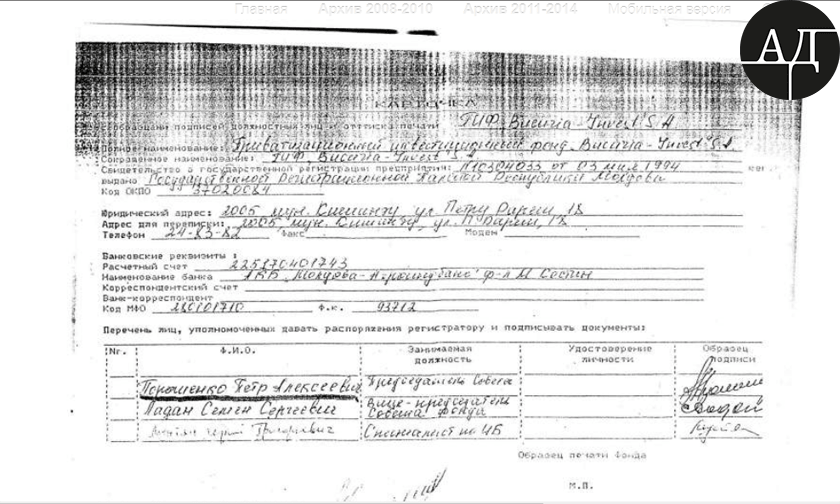 Главная Архив 2008-2010 Архив 2011-2014 Мобильная версия
АД
КАРТОЧКА
подписей должностных лиц и оттиска печати ПИФ „Bucuria-Invest" S.A.
Полное наименование: Приватизационный инвестиционный фонд „Bucuria-Invest" S.A.
Сокращенное наименование: ПИФ „Bucuria-Invest" S.A.
Свидетельство о государственной регистрации предприятия: от 03 мая 1994
выдано Государственной Регистрационной Палатой Республики Молдова
Код ОКПО 37020084
Юридический адрес: 2005 мун. Кишинэу ул Петру Рареш, 18
Адрес для переписки: 2005, мун. Кишинэу, ул. П Рареш, 18
Телефон 24-83-82 Факс Модем
Банковские реквизиты :
Расчетный счет 225170401743
Наименование банка АКБ „Молдова-Агроиндбанк" ф-л М
Корреспондентский счет
Банк-корреспондент
Код МФО 280101710 Ф.к. 93712
Перечень лиц, уполномоченных давать распоряжения регистратору и подписывать документы:
Nr. Ф.И.О. Занимаемая должность Удостоверение личности Образец подписи
Порошенко Петр Алексеевич Председатель Совета
Ладан Семен Сергеевич Вице-председатель Совета фонда
Григорьевич Специалист по ЦБ
Образец печати Фонда
М.П.